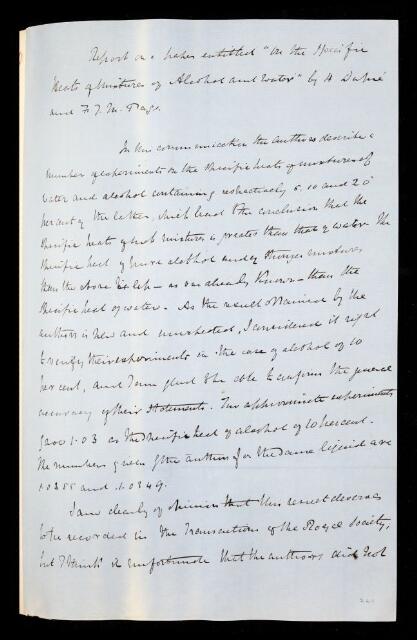 Report on a paper entitled "On the Specific
Heats of Mixtures of Alcohol and Water" by A Dupré
and F. J. M. Page.
In this communication the authors describe a
number of experiments on the specific heats of mixtures of
water and alcohol containing respectively 5. 10 and 20
per cent of the latter, which lead to the conclusion that the
specific heats of such mixtures is greater than that of water. The
specific heat of pure alcohol and of stronger mixtures
than the above is less – as was already known – than the
specific heat of water. As the result obtained by the
authors is new and unexpected, I considered it right
to verify their experiments in the case of alcohol of 10
per cent, and I am glad to be able to confirm the general
accuracy of their statements. Two approximate experiments
gave 1.03 as the specific heat of alcohol of 10 per cent.
The numbers given by the authors for the same liquid are
1.0355 and 1.0349.
I am clearly of opinion that this result deserves
to be recorded in the Transactions of the Royal Society,
but I think it unfortunate that the authors did not